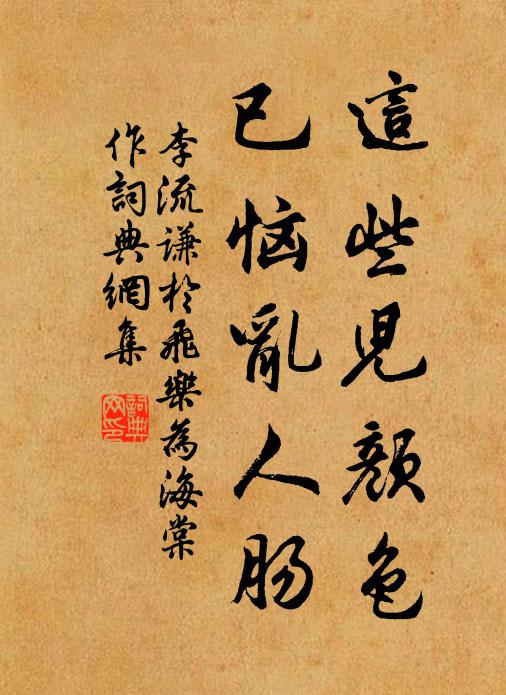 這些兒顏色
已恼亂人肠
李流谦於飛樂為海棠
作詞典網集
詞典
网印